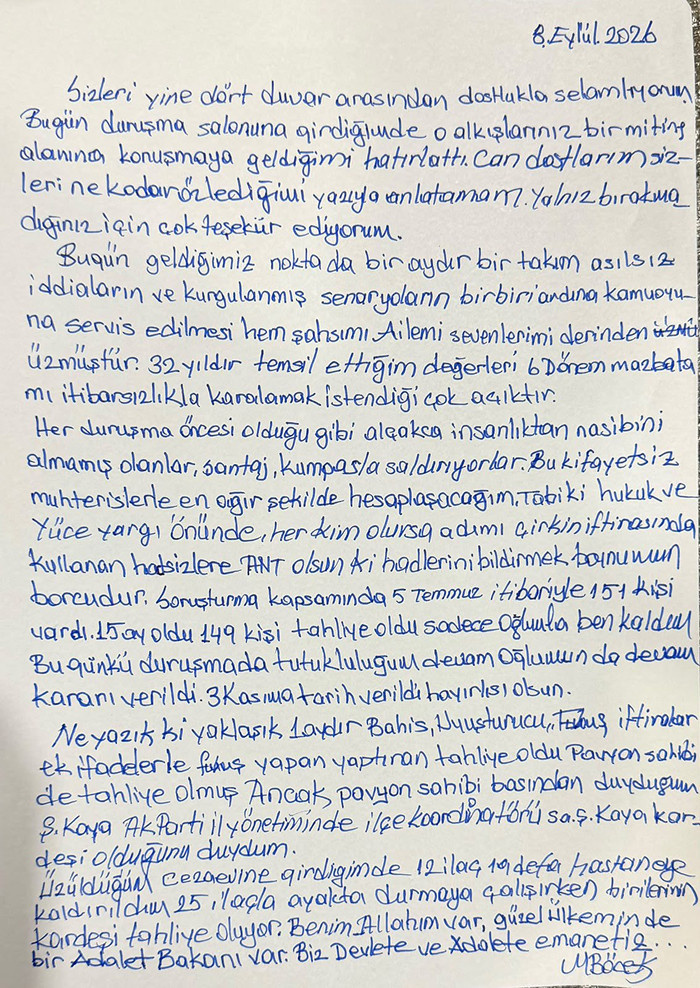 8.Eylül.2026
Sizleri yine dört duvar arasından dostlukla selamlıyorum
Bugün duruşma salonuna girdiğimde o alkışlarınız bir miting
alanına konuşmaya geldiğimi hatırlattı. Can dostlarım siz-
leri ne kadar özlediğimi yazıya anlatamam. Yalnız bırakma
dığınız için çok teşekür ediyorum.
Bugün geldiğimiz nokta da bir aydır bir takım asılsız
iddiaların ve kurgulanmış senaryoların birbiri ardına kamuoyu-
na servis edilmesi hem şahsımı Ailemi sevenlerimi derinden
üzmüştür. 32 yıldır temsil ettiğim değerleri 6 Dönem mazbata
mı itibarsızlıkla karalamak istendiği çok açıktır.
Her duruşma öncesi olduğu gibi alçakca insanlıktan nasibini
almamış olanlar, şantaj, kumpasla saldırıyorlar. Bu kifayetsiz
muhterislerle en ağır şekilde hesaplaşacağım. Tabi ki hukuk ve
Yüce yargı önünde, her kim olursa adımı çirkin iftirasında
kullanan hadsizlere ANT olsun ki hadlerini bildirmek boynumun
borcudur. Soruşturma kapsamında 5 Temmuz itibariyle 151 kişi
vardı. 15 ay oldu 149 kişi tahliye oldu sadece Oğlumla ben kaldım
Bu günkü duruşmada tutukluluğum devam Oğlumun da devam
kararı verildi. 3 Kasıma tarih verildi hayırlısı olsun.
Ne yazık ki yaklaşık 1 aydır Bahis, Uyuşturucu, Fuhuş iftiralar
ek ifadelerle fuhuş yapan yaptıran tahliye oldu Pavyon sahibi
de tahliye olmuş Ancak pavyon sahibi basından duyduğum
Ş. Kaya AK Parti il yönetiminde ilçe koordinatörü sa.ş. Kaya kar-
deşi olduğunu duydum.
Üzüldüğüm cezaevine girdiğimde 12 ilaç 19 defa hastaneye
kaldırıldım 25 ilaçla ayakta durmaya çalışırken birilerinin
kardeşi tahliye oluyor. Benim Allahım var, güzel Ülkemin de
bir Adalet Bakanı var. Biz Devlete ve Adalete emanetiz...
MBöcek